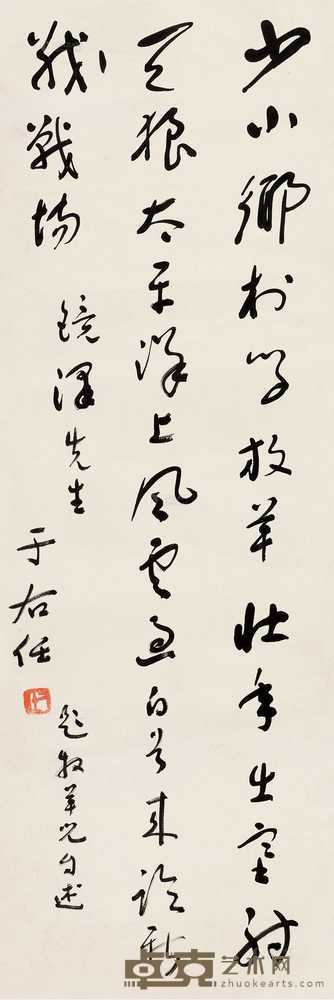 少小鄉村學牧羊壯年出塞射
天狼太平洋上風雲白首來論新
戰場
鏡澤先生
于右任
題牧羊兒自述
卓克艺术网
www.zhuokearts.com